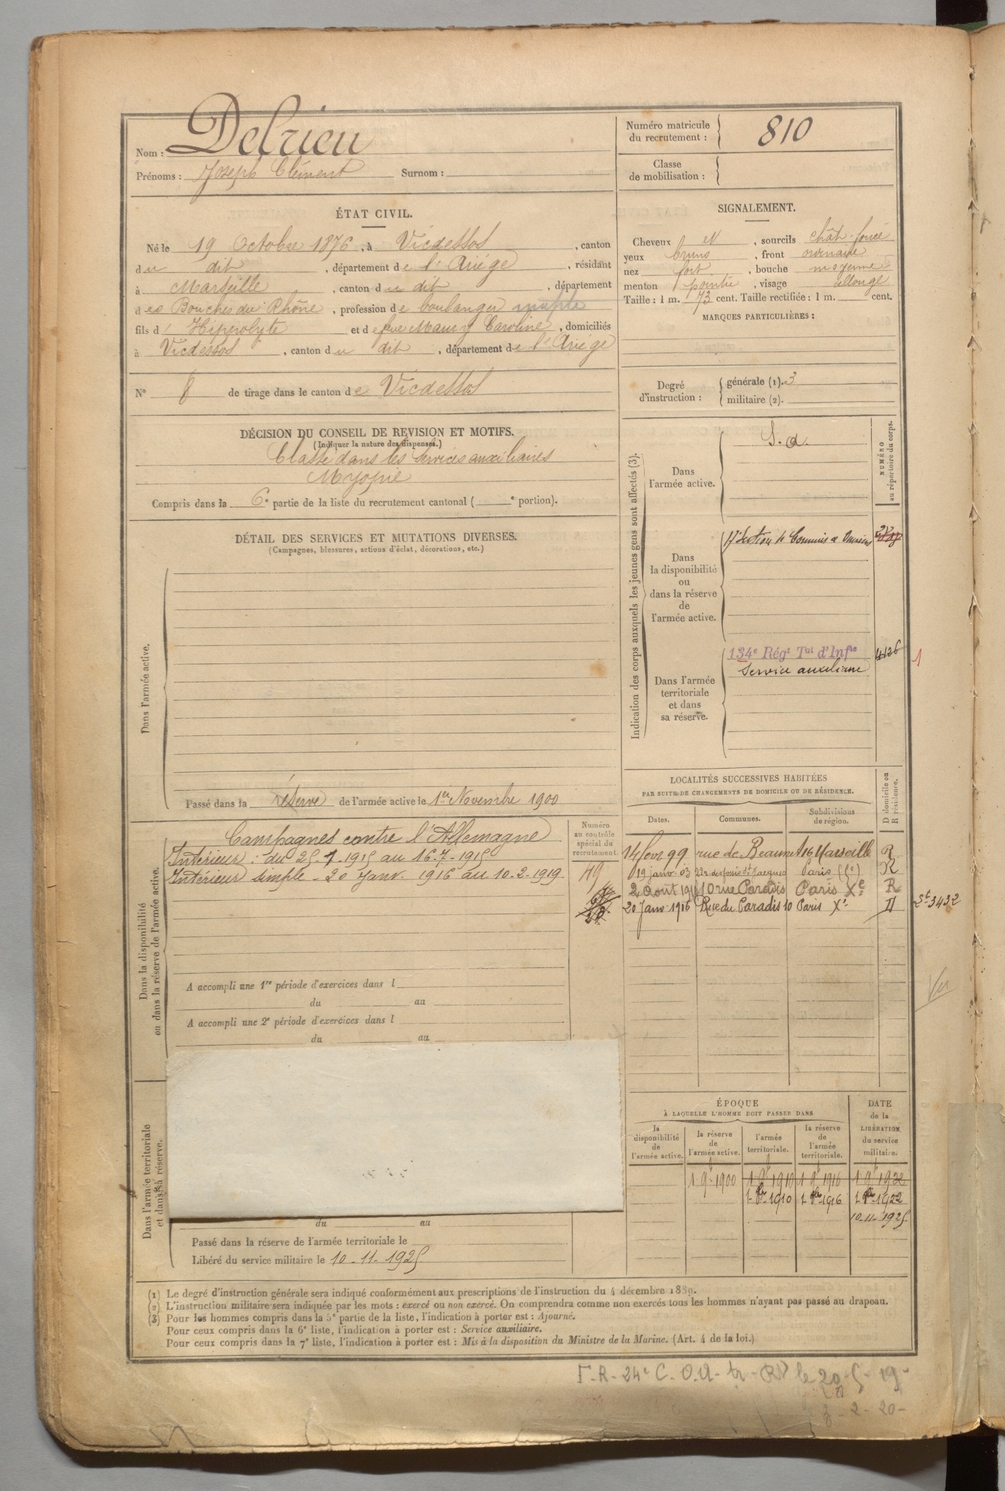 Nom : Delrieu
Prénoms : Joseph Clément Surnom :
Numéro matricule
du recrutement : 810
Classe
de mobilisation :
ÉTAT CIVIL.
Né le 19 Octobre 1876, à Vicdessos, canton
du dit, département de l'Ariège, résidant
à Marseille, canton du dit, département
des Bouches du Rhône, profession de boulanger
fils d' Hyppolyte et de Caroline, domiciliés
à Vicdessos, canton du dit, département de l'Ariège
N° 8 de tirage dans le canton de Vicdessos
SIGNALEMENT.
Cheveux et, sourcils chât. foncé
yeux bruns, front ordinaire
nez fort, bouche moyenne
menton pointu, visage allongé
Taille : 1 m. 73 cent. Taille rectifiée : 1 m. cent.
MARQUES PARTICULIÈRES :
Degré
d'instruction :
générale (1). 3
militaire (2).
DÉCISION DU CONSEIL DE REVISION ET MOTIFS.
(Indiquer la nature des dispenses.)
Classé dans les services auxiliaires
Myopie
Compris dans la 6e partie de la liste du recrutement cantonal ( e portion).
DÉTAIL DES SERVICES ET MUTATIONS DIVERSES.
(Campagnes, blessures, actions d'éclat, décorations, etc.)
Dans l'armée active.
Passé dans la réserve de l'armée active le 1er Novembre 1900
Indication des corps auxquels les jeunes gens sont affectés (3).
NUMÉRO
au répertoire du corps.
Dans
l'armée active.
S. a.
Dans
la disponibilité
ou
dans la réserve
de
l'armée active.
Section de Commis
Dans l'armée
territoriale
et dans
sa réserve.
134e Régt Tal d'Infie
Service auxiliaire
4126
1
Dans la disponibilité
ou dans la réserve de l'armée active.
Campagnes contre l'Allemagne
Intérieur : du 25-1-1915 au 16-7-1915
Intérieur simple - 20 janv. 1916 au 10-2-1919.
A accompli une 1re période d'exercices dans l
du au
A accompli une 2e période d'exercices dans l
du au
Numéro
au contrôle
spécial du
recrutement.
LOCALITÉS SUCCESSIVES HABITÉES
PAR SUITE DE CHANGEMENTS DE DOMICILE OU DE RÉSIDENCE.
Dates. Communes. Subdivisions
de région.
D domicile ou
R résidence.
14 févr 99 rue de Beaumont 16 Marseille R
19 janv. 03 St Jacques Paris R
2 Août 191 10 rue Paradis Paris Xe R
20 Janv 1916 Rue du Paradis 10 Paris Xe D
3432
ÉPOQUE
À LAQUELLE L'HOMME DOIT PASSER DANS
la
disponibilité
de
l'armée active.
la réserve
de
l'armée active.
l'armée
territoriale.
la réserve
de
l'armée
territoriale.
DATE
de la
LIBÉRATION
du service
militaire.
1 9bre 1900 1 9bre 1910 1 9bre 1916 1 9bre 1922
1er 8bre 1910 1er 8bre 1916 1er 8bre 1922
10-11-1925
Dans l'armée territoriale
et dans sa réserve.
du au
Passé dans la réserve de l'armée territoriale le
Libéré du service militaire le 10-11-1925
(1) Le degré d'instruction générale sera indiqué conformément aux prescriptions de l'instruction du 4 décembre 1889.
(2) L'instruction militaire sera indiquée par les mots : exercé ou non exercé. On comprendra comme non exercés tous les hommes n'ayant pas passé au drapeau.
(3) Pour les hommes compris dans la 5e partie de la liste, l'indication à porter est : Ajourné.
Pour ceux compris dans la 6e liste, l'indication à porter est : Service auxiliaire.
Pour ceux compris dans la 7e liste, l'indication à porter est : Mis à la disposition du Ministre de la Marine. (Art. 4 de la loi.)